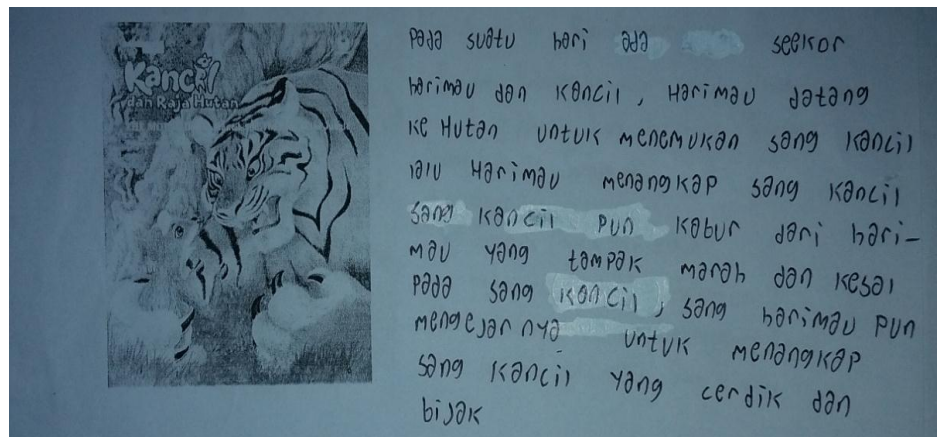 Kancil
dan Raja Hutan
Pada suatu hari ada seekor
harimau dan Kancil, Harimau datang
ke Hutan untuk menemukan sang Kancil
lalu Harimau menangkap sang Kancil
sang Kancil pun kabur dari hari-
mau yang tampak marah dan kesal
Pada sang Kancil, sang harimau pun
mengejarnya untuk menangkap
sang Kancil yang cerdik dan
bijak